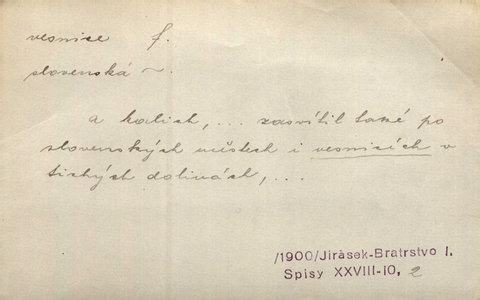 vesnice f.
slovenská ~.
a kalich, ... zasvítil také po
slovenských městech i vesnicích v
tichých dolinách, ...
/1900/Jirásek-Bratrstvo I.
Spisy XXVIII-10, 2